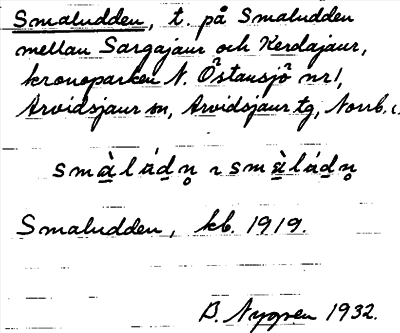 Smaludden, t. på Smaludden
mellan Sargajaur och Kerdajaur,
kronoparken N. Östansjö nr 1,
Arvidsjaur sn, Arvidsjaur tg, Norrb. l.
smàládn̥ ɿ smàládn̥
Smaludden, kb. 1919.
B. Nygren 1932.